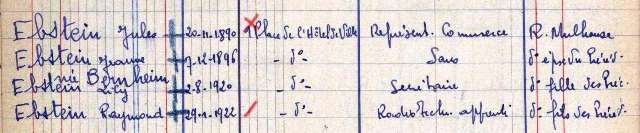 Ebstein Jules 20-11-1890 1 Place de l'Hôtel de Ville Représent. Commerce R. Mulhouse
Ebstein Jeanne 7-12-1896 - d° - Sans d° épse du Préc'd.
née Bernheim
Ebstein Lily 2-8-1920 - d° - Secrétaire d° fille des Préc'd.
Ebstein Raymond 29-1-1922 - d° - apprenti d° fils des Préc'd.